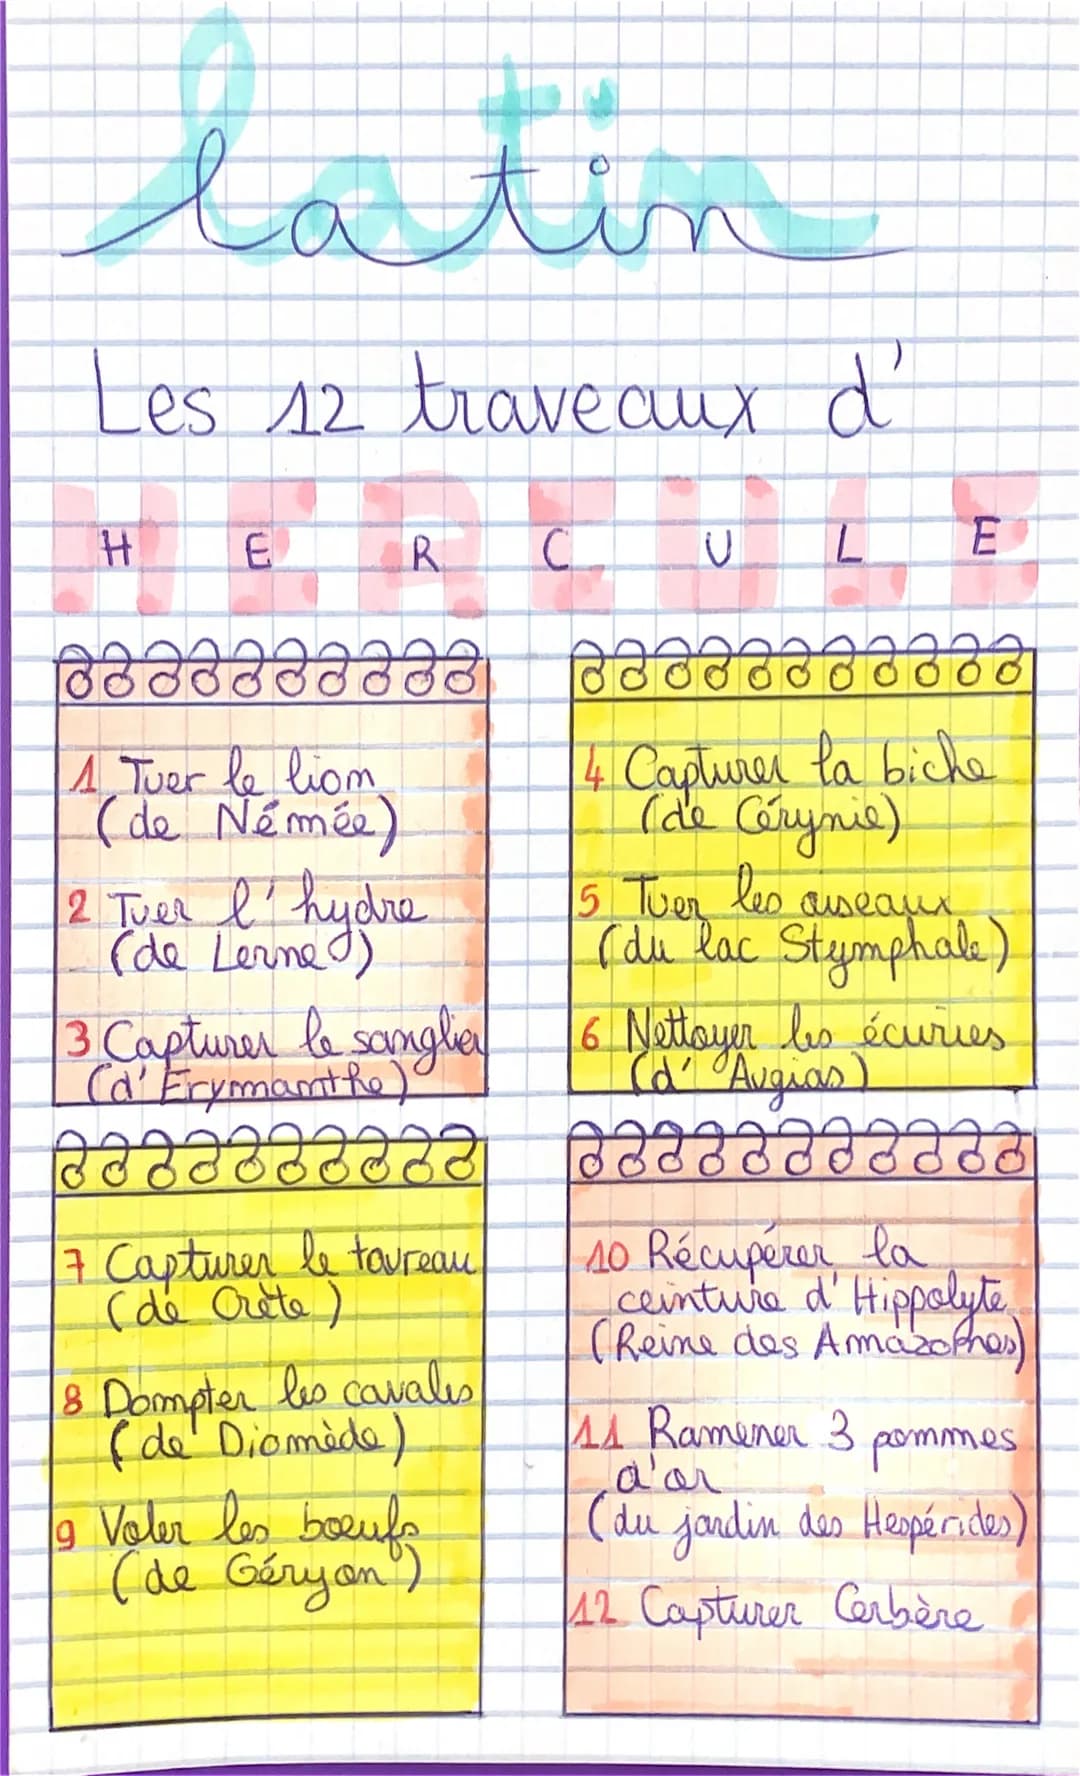 latin
Les 12 traveaux d'
HERCULE
1 Tuer le lion
(de Némée)
2 Tuer l'hydre
(de Lerne)
3 Capturer le sanglier
(d'Erymanthe)
4 Capturer la biche
(de Cérynie)
5 Tuer les oiseaux
(du lac Stymphale)
6 Nettoyer les écuries
(d'Augias)
7 Capturer le taureau
(de Crète)
8 Dompter les cavales
(de Diomède)
9 Voler les bœufs
(de Géryon)
10 Récupérer la
ceinture d'Hippolyte
(Reine des Amazophes)
11 Ramener 3 pommes
d'or
(du jardin des Hespérides)
12 Capturer Cerbère